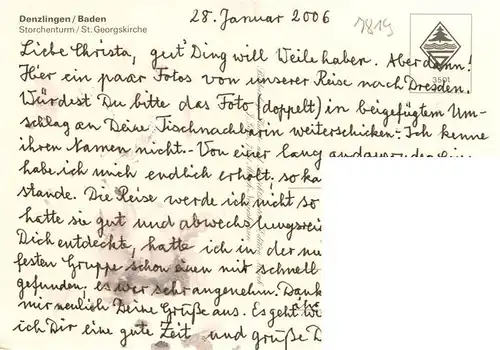 Denzlingen / Baden
Storchenturm / St. Georgskirche
28. Januar 2006
7819
3501
Liebe Christa, gut' Ding will Weile haben. Aber dann!
Hier ein paar Fotos von unserer Reise nach Dresden.
Würdest Du bitte das Foto (doppelt) in beigefügtem Um-
schlag an Deine Tischnachbarin weiterschicken. - Ich kenne
ihren Namen nicht. - Von einer lang
habe ich mich endlich erholt, so ka
stande. Die Reise werde ich nicht so
hatte sie gut und abwechslungsrei
Dich entdeckte, hatte ich in der
festen Gruppe schon einen mit schnell
gefunden, es war sehr angenehm. Dank
mir neulich Deine Grüße aus. Es geht
ich Dir eine gute Zeit und grüße D